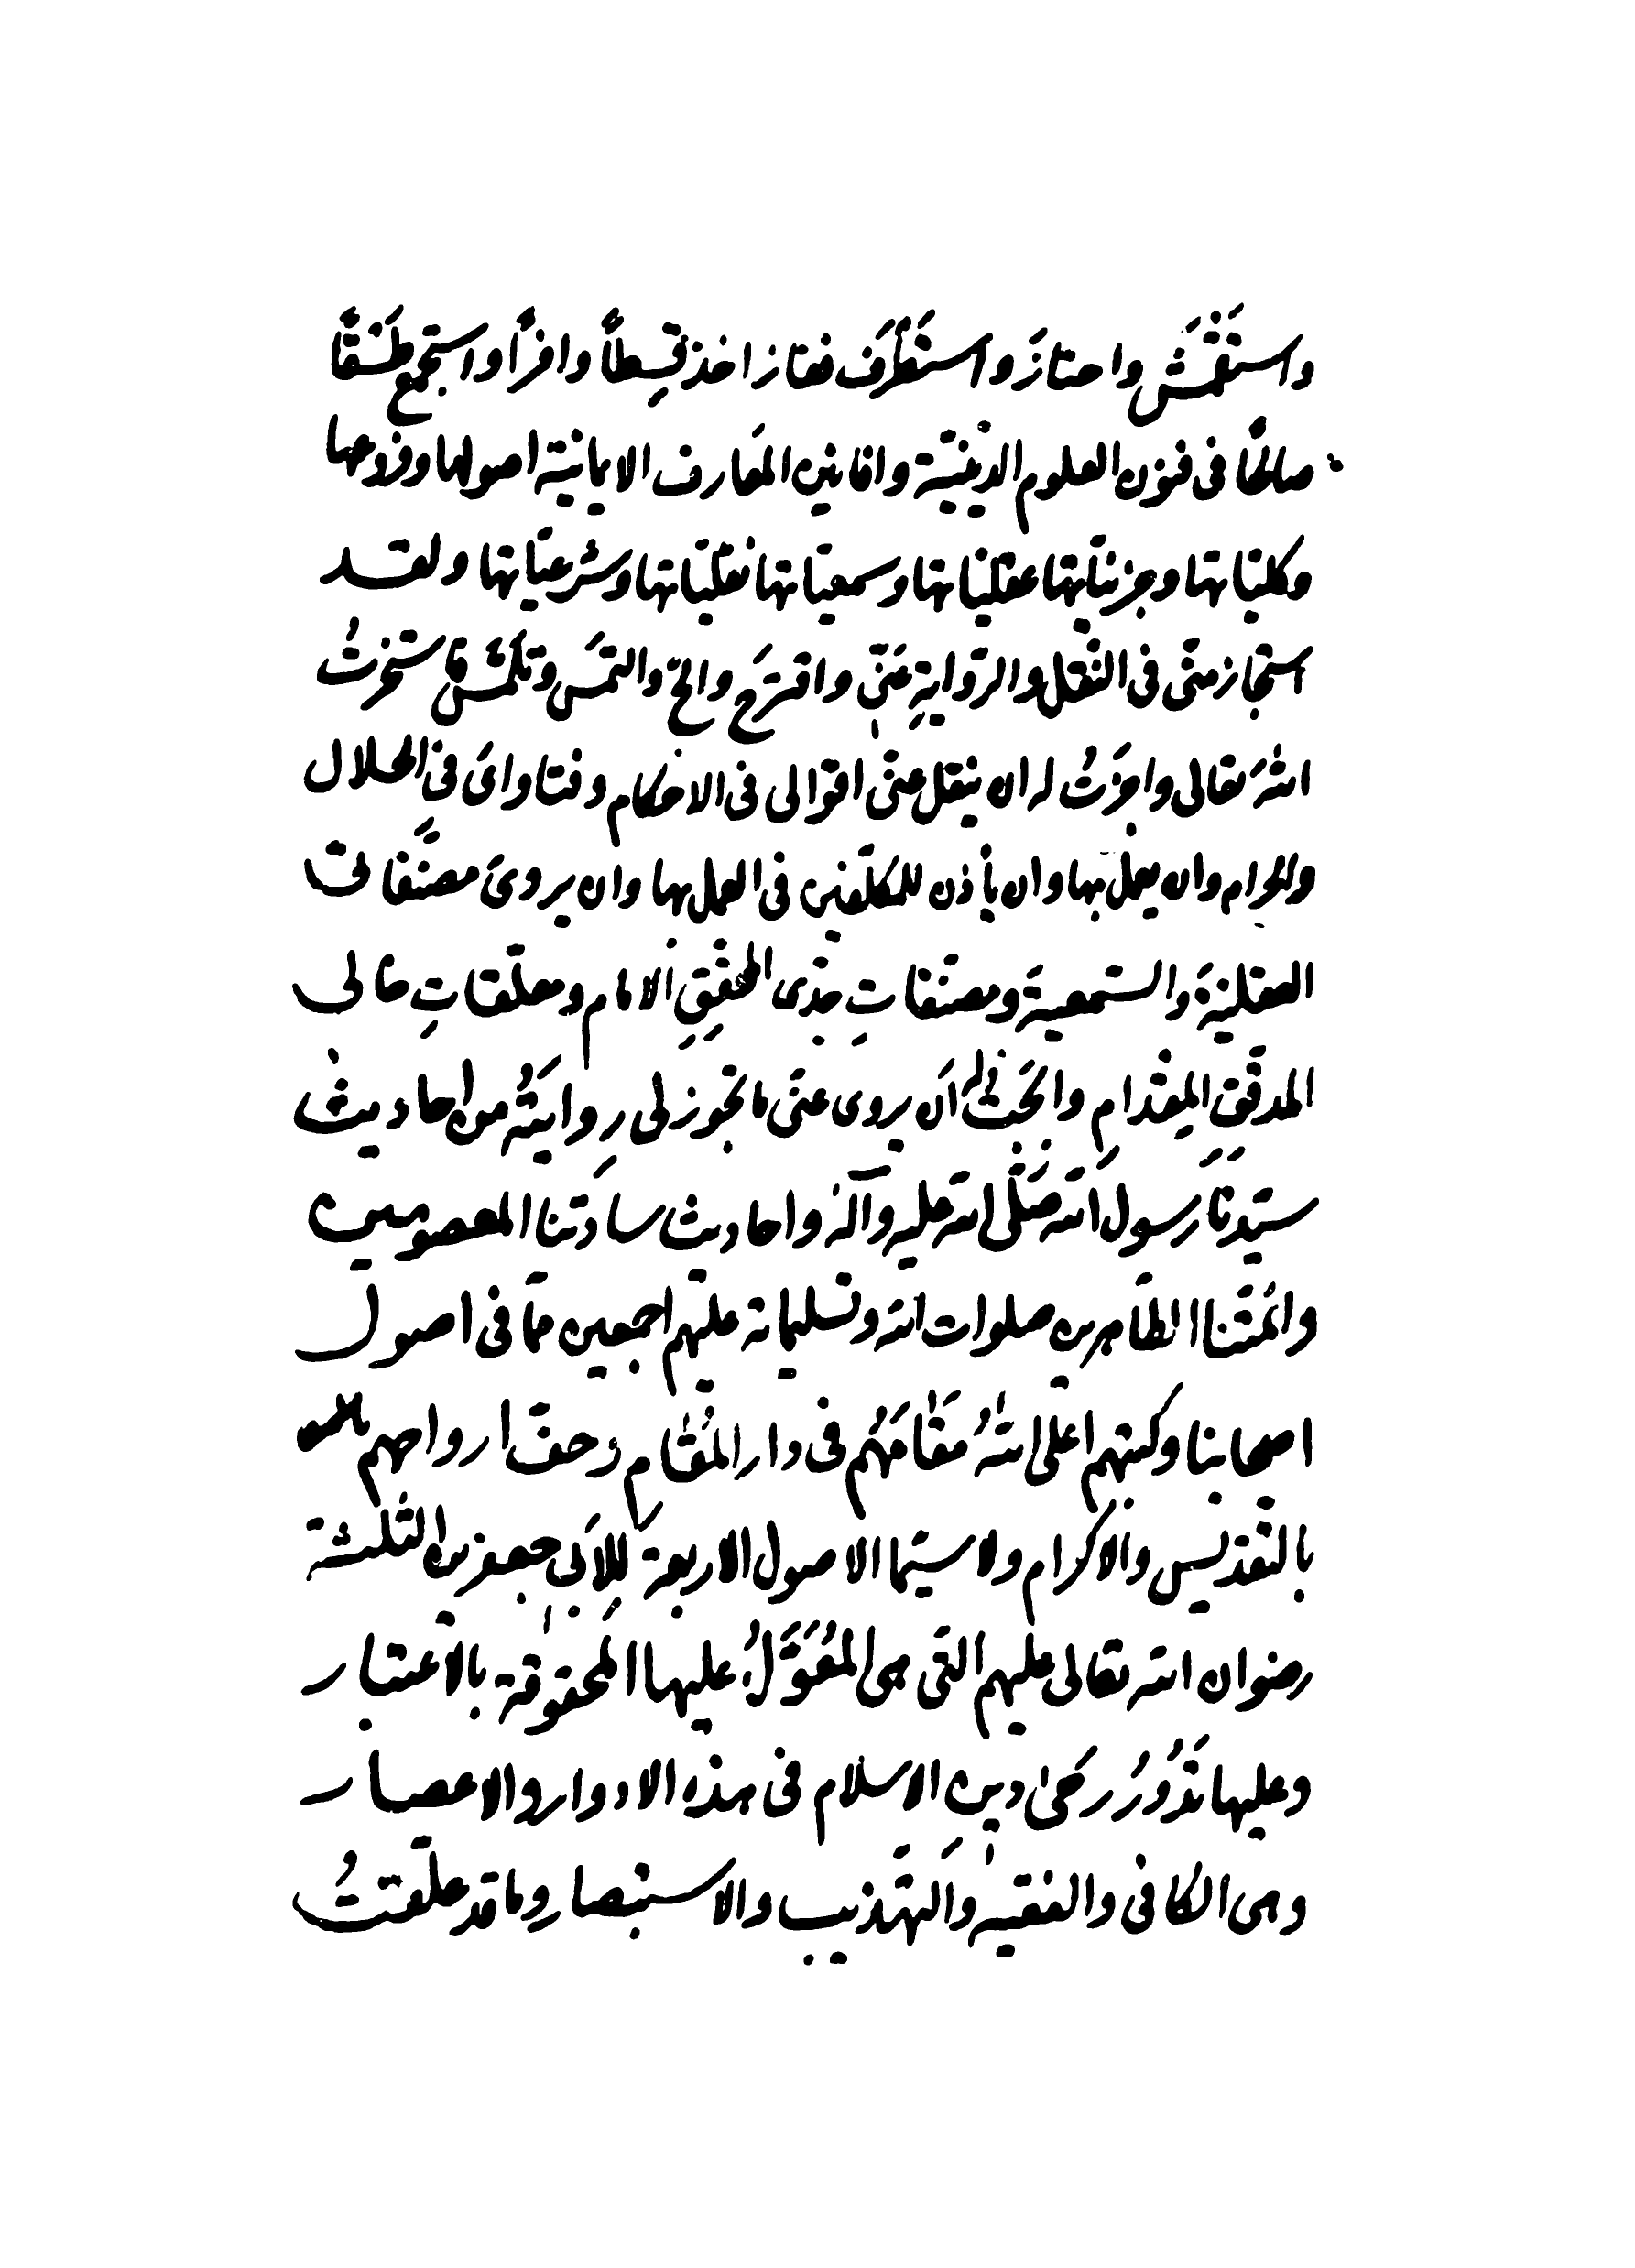 واستقمش واحتاز واستطرف ففاز اخذ قسطاً وافراً واستجمع طسقاً
صالحاً فى فنون العلوم الدينيّة وافانين المعارف الايمانية اصولها وفروعها
وكليّاتها وجزئيّاتها عقليّاتها وسمعيّاتها نقليّاتها وشرعيّاتها ولقد
استجاز منّى فى النقل والرّواية عنّى واقترح والحّ والتمس وتلمّس فاستخرتُ
الله تعالى واجزتُ له ان ينقل عنّى اقوالى فى الاحكام وفتاواى فى الحلال
والحرام وان يعمل بها وان يأذن للمكلّفين فى العمل بها وان يروى مصنّفاتى
العقليّة والسّمعية ومصنّفاتِ جدّى المحقّقِ الامام ومعلّقاتِ خالى
المدقّق المِقدامِ وابحتُ له اَن يروى عنّى ما تجوز لى رِوايتُه من احاديث
سيّدنا رسول الله صلّى الله عليه وآله واحاديث سادتنا المعصومين
وائمّتنا الطّاهرين صلوات الله وتسليماته عليهم اجمعين ممّا فى اصول
اصحابنا وكتبهم اعلى اللهُ مَقامَهُم فى دار المُقامِ وحفّ ارواحهم
بالتقديس والاكرام ولا سيّما الاصول الاربعة لِلاَبى جعفرين الثلثة
رضوان الله تعالى عليهم التى هى المُعَوَّلُ عليها المحقوقة بالاعتبار
وعليها تَدُورُ رحَىٰ دين الاسلام فى هذه الادوار والاعصار
وهى الكافى والفقيه والتهذيب والاستبصار وما قد علّقتُ